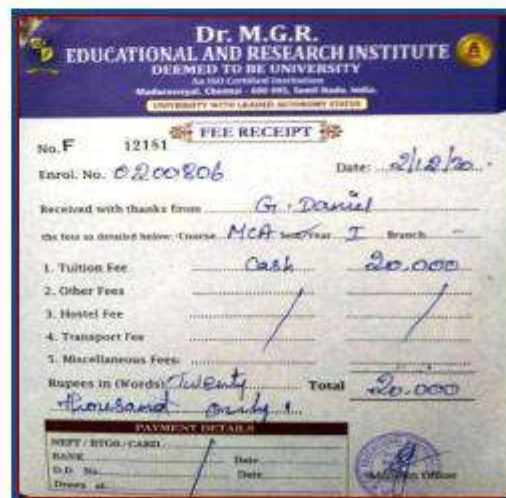 Dr. M.G.R.
EDUCATIONAL AND RESEARCH INSTITUTE
DEEMED TO BE UNIVERSITY
An ISO Certified Institution
Maduravoyal, Chennai - 600 095, Tamil Nadu, India.
UNIVERSITY WITH GRADED AUTONOMY STATUS
FEE RECEIPT
No. F 12181
Enrol. No. 0200806 Date: 2/12/20
Received with thanks from G. Daniel
the fees as detailed below: Course MCA Sem/Year I Branch -
1. Tuition Fee Cash 20.000
2. Other Fees
3. Hostel Fee
4. Transport Fee
5. Miscellaneous Fees
Rupees in (Words) Twenty Total 20.000
thousand only
PAYMENT DETAILS
NEFT / RTGS / CARD
BANK Date
D.D. No. Date
Drawn at
Officer